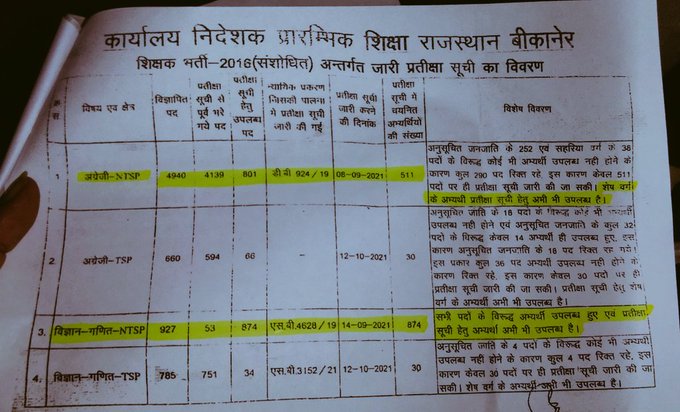 कार्यालय निदेशक प्रारम्भिक शिक्षा राजस्थान बीकानेर
शिक्षक भर्ती-2016(संशोधित) अन्तर्गत जारी प्रतीक्षा सूची का विवरण
विषय एवं क्षेत्र
विज्ञापित
पद
प्रतीक्षा
सूची से
पूर्व भरे
गये पद
प्रतीक्षा
सूची
हेतु
उपलब्ध
पद
न्यायिक प्रकरण
जिसकी पालना
में प्रतीक्षा सूची
जारी की गई
प्रतीक्षा सूची
जारी करने
की दिनांक
प्रतीक्षा
सूची में
चयनित
अभ्यर्थियों
की संख्या
विशेष विवरण
1. अंग्रेजी-NTSP 4940 4139 801 डी.बी 924/19 08-09-2021 511
अनुसूचित जनजाति के 252 एवं सहरिया वर्ग के 38
पदों के विरूद्ध कोई भी अभ्यर्थी उपलब्ध नही होने के
कारण कुल 290 पद रिक्त रहे, इस कारण केवल 511
पदों पर ही प्रतीक्षा सूची जारी की जा सकी। शेष वर्ग
के अभ्यर्थी प्रतीक्षा सूची हेतु अभी भी उपलब्ध है।
2. अंग्रेजी-TSP 660 594 66 - 12-10-2021 30
अनुसूचित जाति के 18 पदों के विरूद्ध कोई भी अभ्यर्थी
उपलब्ध नही होने एवं अनुसूचित जनजाति के कुल 32
पदों के विरूद्ध केवल 14 अभ्यर्थी ही उपलब्ध हुए, इस
कारण अनुसूचित जनजाति के 18 पद रिक्त रह गये।
इस प्रकार कुल 36 पद अभ्यर्थी उपलब्ध नही होने के
कारण रिक्त रहे, इस कारण केवल 30 पदों पर ही
प्रतीक्षा सूची जारी की जा सकी। प्रतीक्षा सूची हेतु शेष
वर्ग के अभ्यर्थी अभी भी उपलब्ध है।
3. विज्ञान-गणित-NTSP 927 53 874 एस.बी.4628/19 14-09-2021 874
सभी पदों के विरूद्ध अभ्यर्थी उपलब्ध हुए एवं प्रतीक्षा
सूची हेतु अभ्यर्थी अभी भी उपलब्ध है।
4. विज्ञान-गणित-TSP 785 751 34 एस.बी.3152/21 12-10-2021 30
अनुसूचित जाति के 4 पदों के विरूद्ध कोई भी अभ्यर्थी
उपलब्ध नही होने के कारण कुल 4 पद रिक्त रहे, इस
कारण केवल 30 पदों पर ही प्रतीक्षा सूची जारी की जा
सकी। शेष वर्ग के अभ्यर्थी अभी भी उपलब्ध है।